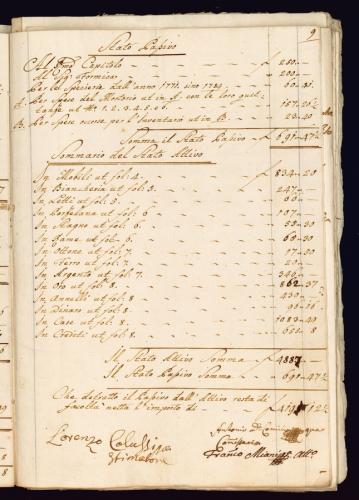 9
Stato Passivo
Al Rmo Capitolo - - - f 250. -
Al Sigr Formica - - - 200. -
Per la Specieria dall'anno 1771. sino 1784 - 60. 31.
A. Per Spese del Mortorio ut in A con le loro quit-
tanze ut No 1. 2. 3. 4. 5. 6. - 157. 26½
B. Per Spese occorse per l'Inventario ut in B. - 23. 40
Somma il Stato Passivo - f 691. 47½
Sommario del Stato Attivo
In Mobili ut fol: 4. - f 834. 20
In Biancheria ut fol: 5. - 247. -
In Letti ut fol: 5. - 60. -
In Porselana ut fol: 6. - 107. -
In Stagno ut fol: 6. - 55. 30
In Rame ut fol: 6. - 60. 30
In Ottone ut fol: 7. - 17. 30
In Ferro ut fol: 7. - 22. -
In Argento ut fol: 7. - 340. -
In Oro ut fol: 8. - 862. 37
In Annelli ut fol: 8. - 430. -
In Danaro ut fol: 8.
In Case ut fol: 8. - 1083. 40
In Crediti ut fol: 8. - 8
Il Stato Attivo Somma - f 4887. -
Il Stato Passivo Somma - f 691. 47½
Che detratto il Passivo dall'Attivo resta di
facoltà netta l'importo di - f 12½
Lorenzo
Antonio de
Franco